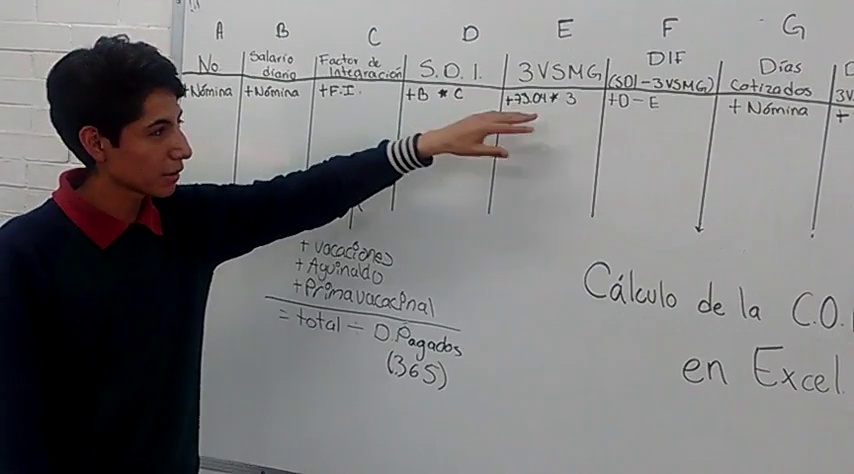 A B C D E F G
No. Salario diario Factor de Integración S.D.I. 3VSMG DIF (SDI-3VSMG) Días Cotizados
+Nómina +Nómina +F.I. +B * C +73.04* 3 +D-E + Nómina
+ vacaciones
+ Aguinaldo
+Prima vacacional
= total ÷ D.Pagados
(365)
Cálculo de la C.O.
en Excel